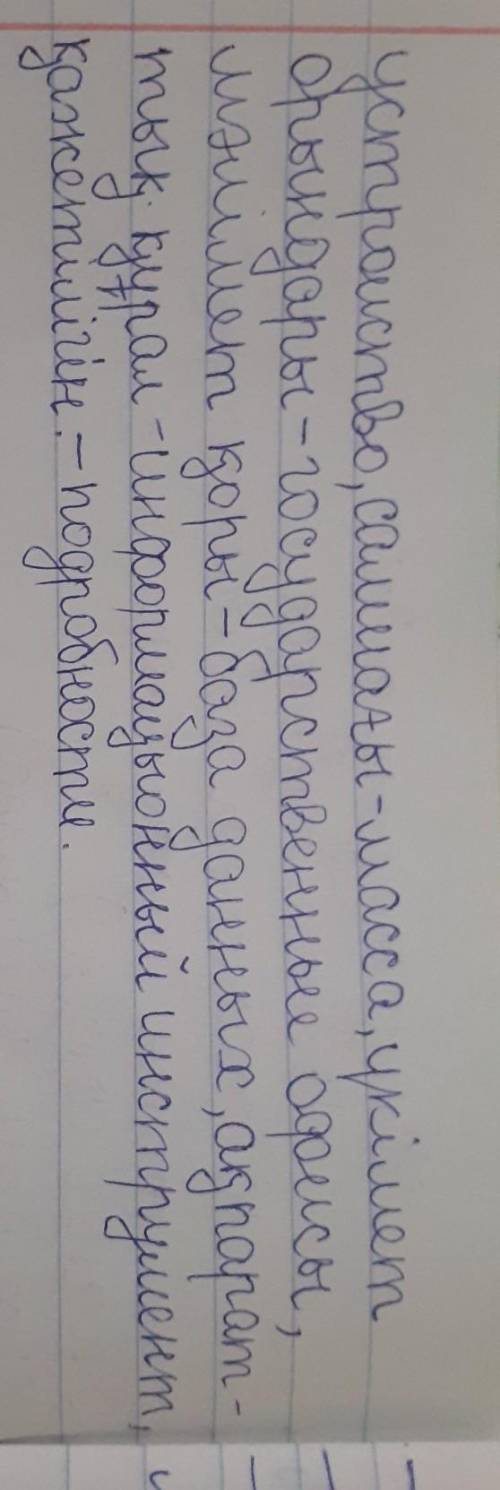 устройство, салмағы-масса, үкімет
орындары-государственные офисы,
мәлімет қоры-база данных, ақпарат-
тық құрал-информацыонный инструмент,
қажетілігін.-подробности.